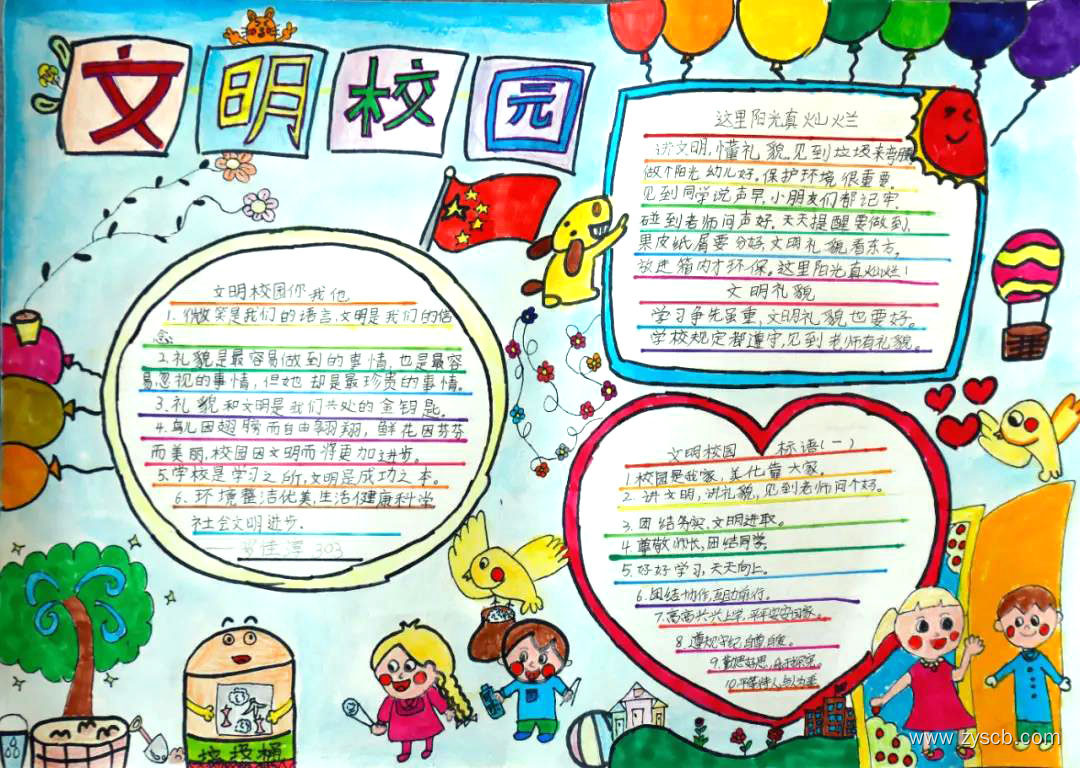 文明校园
文明校园你我他
1.微笑是我们的语言,文明是我们的信
念.
2.礼貌是最容易做到的事情,也是最容
易忽视的事情,但她却是最珍贵的事情.
3.礼貌和文明是我们共处的金钥匙.
4.鸟儿因翅膀而自由翱翔,鲜花因芬芳
而美丽.校园因文明而将更加进步.
5.学校是学习之所,文明是成功之本.
6.环境整洁优美,生活健康科学
社会文明进步.
303
这里阳光真灿烂
讲文明,懂礼貌.见到垃圾来弯腰
做个阳光幼儿好.保护环境很重要.
见到同学说声早,小朋友们都记牢.
碰到老师问声好.天天提醒要做到.
果皮纸屑要分好.文明礼貌看东方.
放进箱内才环保.这里阳光真灿烂!
文明礼貌
学习争先虽重,文明礼貌也要好。
学校规定都遵守,见到老师有礼貌。
文明校园 标语(一)
1校园是我家,美化靠大家.
2.讲文明,讲礼貌,见到老师问个好。
3.团结务实,文明进取。
4.尊敬师长,团结同学
5.好好学习,天天向上。
6.团结协作,互助前行。
7.高高兴兴上学,平平安安回家。
8.遵规守纪,自尊自爱。
9.勤思好思,乐于探究
10.平等待人,与人为善
垃圾桶
www.zyscb.com